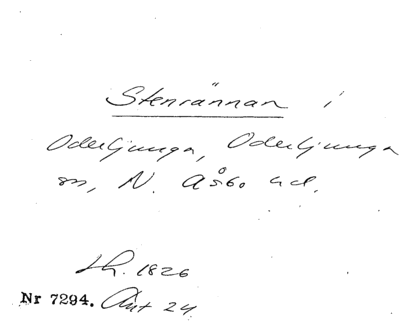 Stenrännan i
Oderljunga, Oderljunga
sn, N. Åsbo hd.
Lh. 1826
Nr 7294. Ant 24